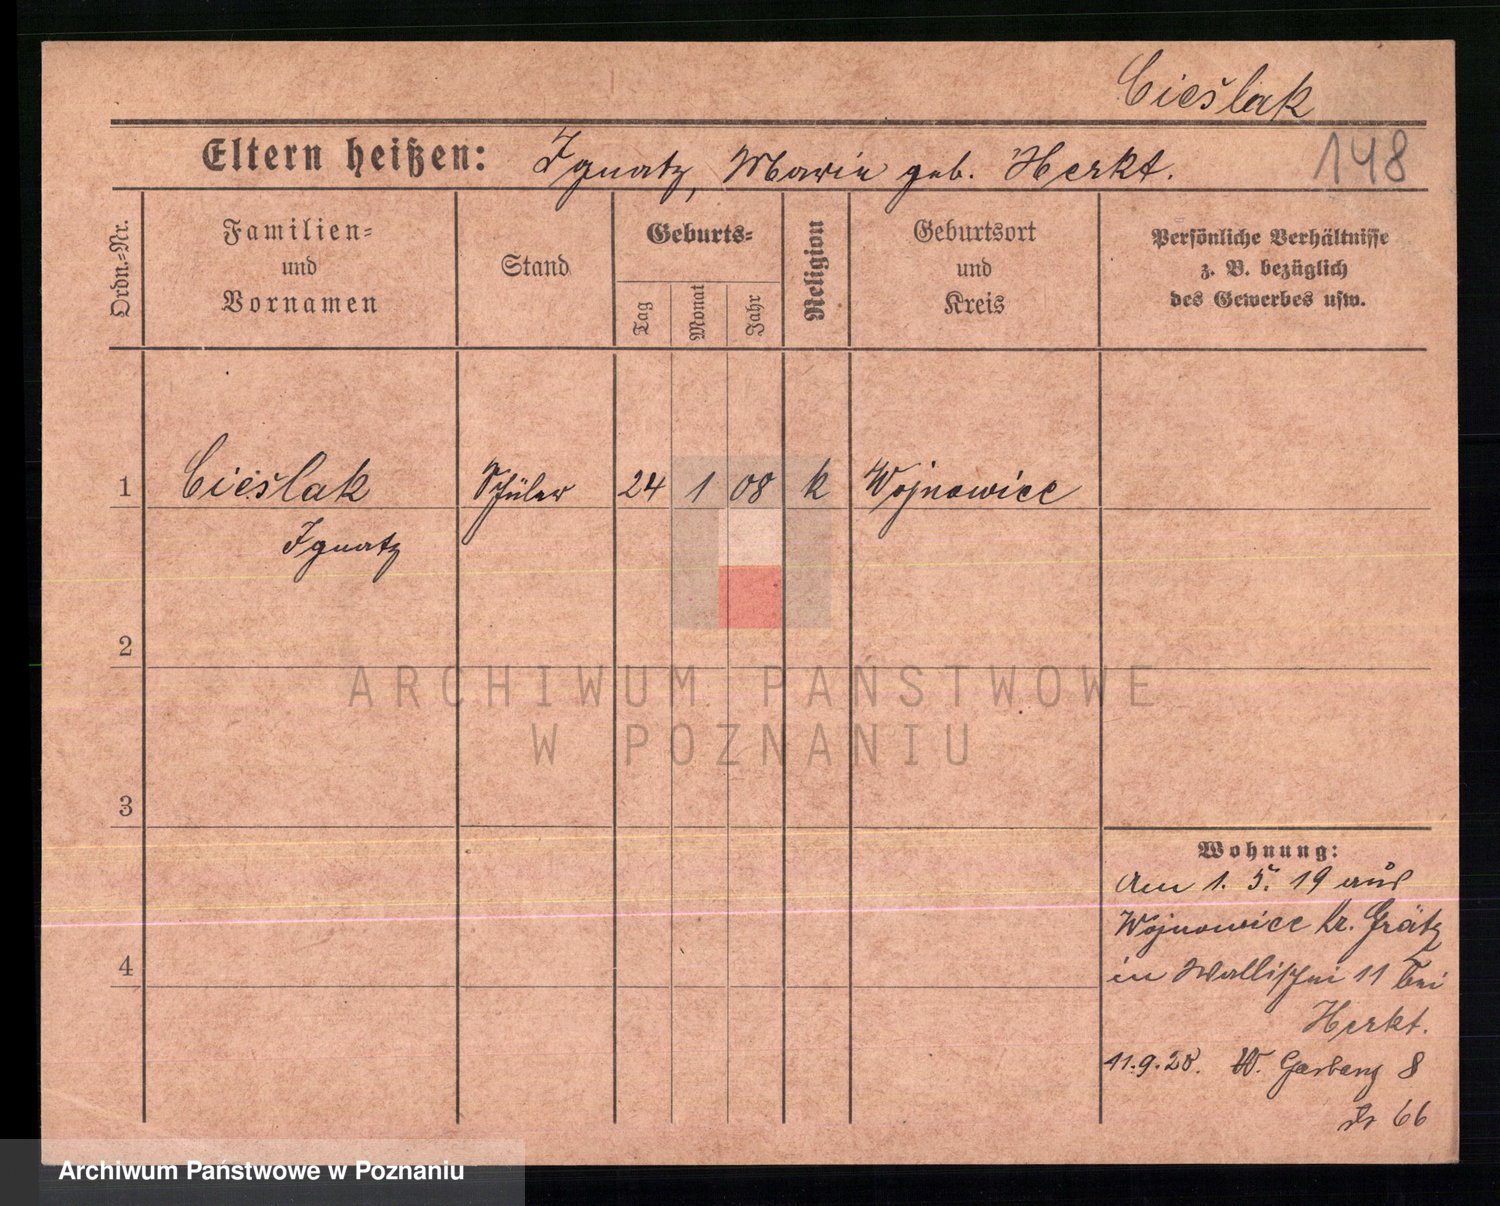 Cieślak
Eltern heißen: Ignatz, Marie geb. Herkt.
148
Ordn.-Nr.
Familien-
und
Vornamen
Stand
Geburts-
Tag
Monat
Jahr
Religion
Geburtsort
und
Kreis
Persönliche Verhältnisse
z. B. bezüglich
des Gewerbes usw.
1 Cieślak Schüler 24 1 08 k Wojnowice
Ignatz
2
ARCHIWUM PAŃSTWOWE
W POZNANIU
3
Wohnung:
Am 1. 5. 19 aus
Wojnowice kr. Grätz
4
in Wallischei 11 bei
Herkt.
11.9.28. W. Garbary 8
66
Archiwum Państwowe w Poznaniu